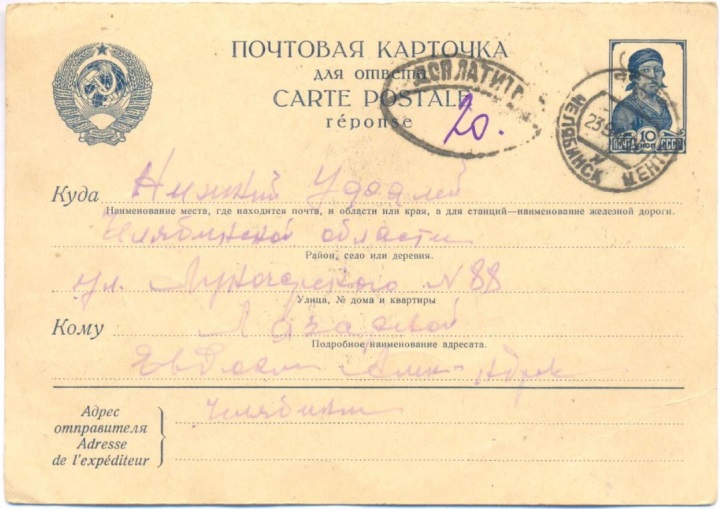 ПОЧТОВАЯ КАРТОЧКА
для ответа
CARTE POSTALE
réponse
20.
10
КОП
ПОЧТА СССР
ЧЕЛЯБИНСК
Куда Нижний
Наименование места, где находится почта, и области или края, а для станций—наименование железной дороги.
Челябинской области
Район, село или деревня.
ул. Луначарского N 88
Улица, № дома и квартиры
Кому
Подробное наименование адресата.
Адрес
отправителя
Adresse
de l'expéditeur
Челябинск